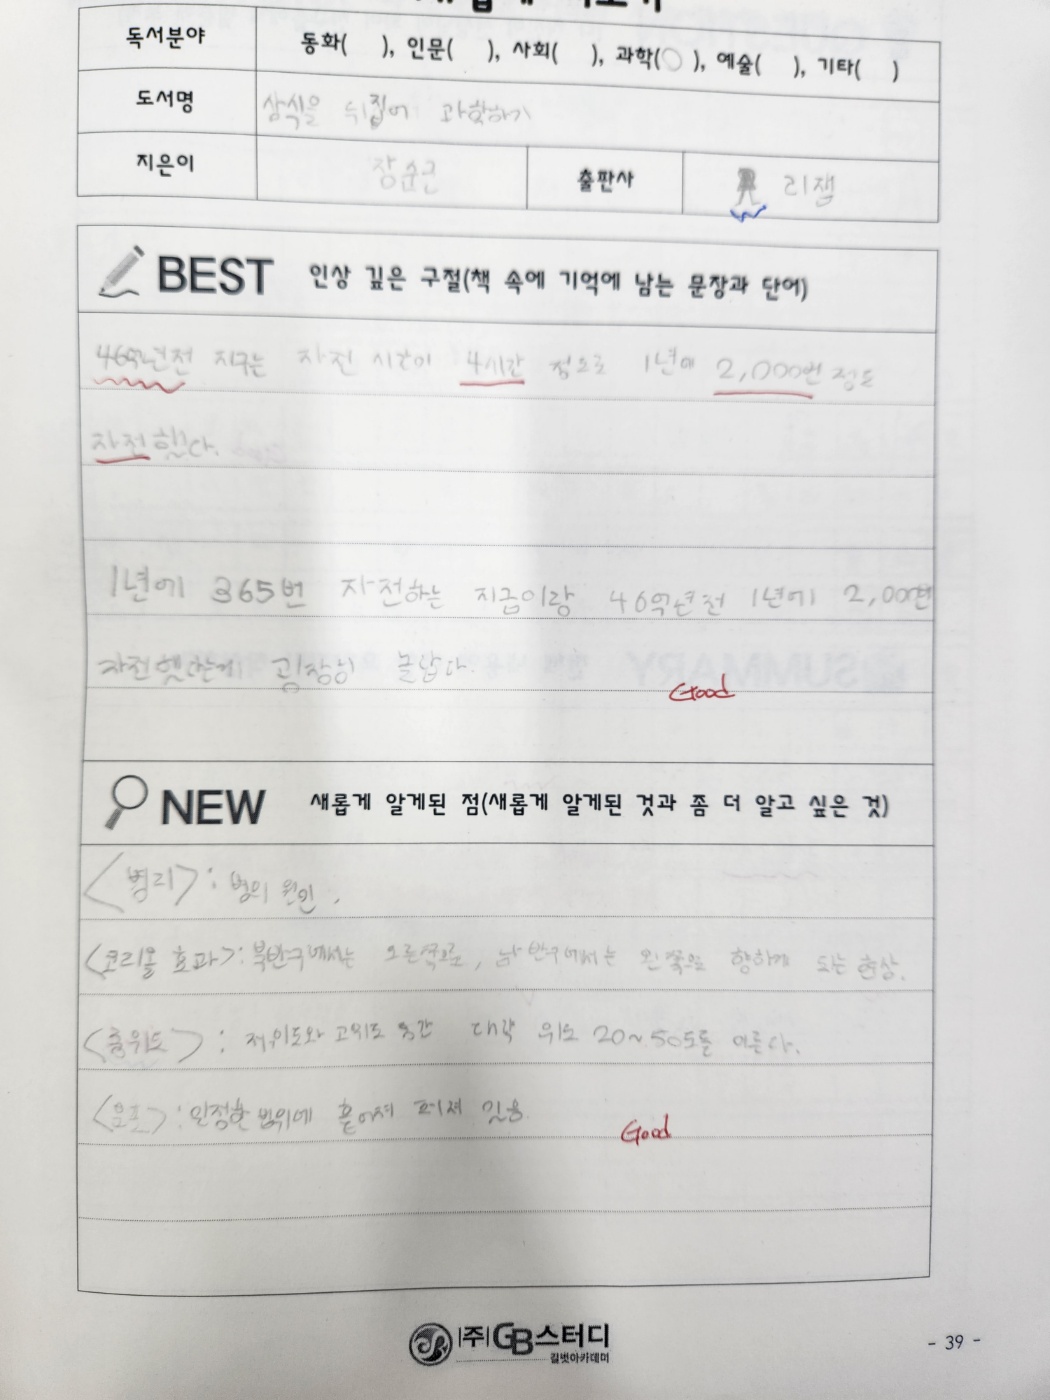 독서분야 동화( ), 인문( ), 사회( ), 과학(○), 예술( ), 기타( )
도서명 상식을 뒤집어 과학하기
지은이 장순근 출판사 리잼
BEST 인상 깊은 구절(책 속에 기억에 남는 문장과 단어)
46억년전 지구는 자전 시간이 4시간 정도로 1년에 2,000번 정도
자전했다.
1년에 365번 자전하는 지금이랑 46억년전 1년에 2,000번
자전햇다는게 굉장히 놀랍다.
Good
NEW 새롭게 알게된 점(새롭게 알게된 것과 좀 더 알고 싶은 것)
<병리> : 병의 원인.
<코리올 효과> : 북반구에서는 오른쪽으로, 남반구에서는 왼쪽으로 향하게 도는 현상.
<중위도> : 저위도와 고위도 중간 대략 위도 20~50도를 이른다.
: 일정한 범위에 흩어져 퍼져 있음
Good
(주)GB스터디
길벗아카데미
- 39 -